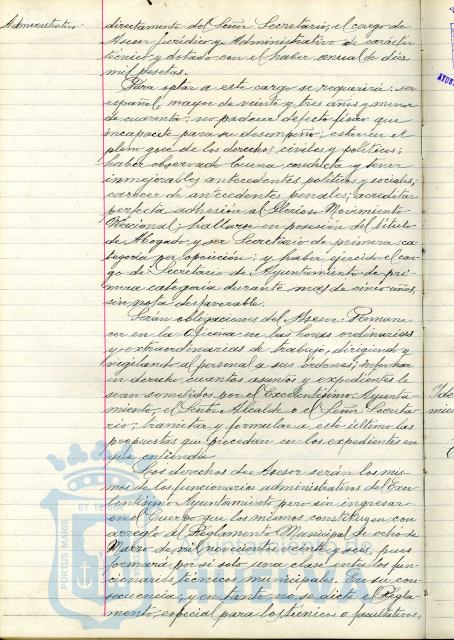 Administrativo
directamente del Señor Secretario, el cargo de
Asesor Jurídico y Administrativo de carácter
técnico y dotado con el haber anual de diez
mil pesetas.
Para optar a este cargo se requerirá: ser
español, mayor de veinte y tres años y menor
de cuarenta; no padecer defecto físico que
incapacite para su desempeño; estar en el
pleno goce de los derechos civiles y políticos;
haber observado buena conducta y tener
inmejorables antecedentes políticos y sociales;
carecer de antecedentes penales; acreditar
perfecta adhesión al Glorioso Movimiento
Nacional; hallarse en posesión del título
de Abogado y ser Secretario de primera ca-
tegoría por oposición; y haber ejercido el car-
go de Secretario de Ayuntamiento de pri-
mera categoría durante mas de cinco años,
sin nota desfavorable.
Serán obligaciones del Asesor: Permane-
cer en la oficina en las horas ordinarias
y extraordinarias de trabajo, dirigiendo y
vigilando al personal a sus órdenes; informar
en derecho cuantos asuntos y expedientes le
sean sometidos por el Excelentísimo Ayunta-
miento, el Señor Alcalde o el Señor Secreta-
rio; tramitar y formular a este último las
propuestas que procedan en los expedientes en
que entienda.
Los derechos de Asesor serán los mis-
mos de los funcionarios administrativos del Exce-
lentísimo Ayuntamiento pero sin ingresar
en el Cuerpo que los mismos constituyen con
arreglo al Reglamento Municipal de ocho de
Marzo de mil novecientos veinte y seis, pues
formará por si solo una clase entre los fun-
cionarios técnicos municipales. En su con-
secuencia, y en tanto no se dicte el Regla-
mento especial para los técnicos o facultativos,
PORTUS MARIS